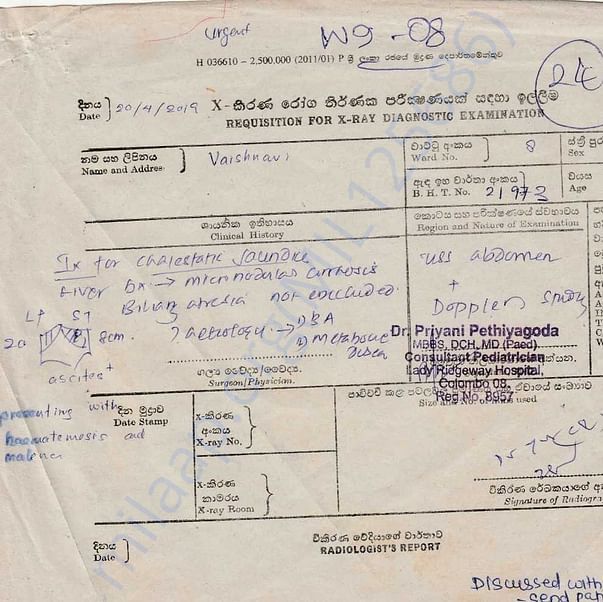 urgent
W9-08
H 036610 – 2,500,000 (2011/01) P ශ්‍රී ලංකා රජයේ මුද්‍රණ දෙපාර්තමේන්තුව
24
දිනය
Date } 20/4/2019
X-කිරණ රෝග නිර්ණක පරීක්ෂණයක් සඳහා ඉල්ලීම
REQUISITION FOR X-RAY DIAGNOSTIC EXAMINATION
නම සහ ලිපිනය
Name and Address } Vaishnavi
වාට්ටු අංකය
Ward No. } 8
ස්ත්‍රී පුරු
Sex
ඇඳ ඉහ වාර්තා අංකය
B. H. T. No. } 21973
වයස
Age
සායනික ඉතිහාසය
Clinical History
කොටස සහ පරීක්ෂණයේ ස්වභාවය
Region and Nature of Examination
Ix for cholestatic Jaundice
Liver bx → micronodular cirrhosis
Biliary atresia not excluded.
LF ST
20 8cm. ? aetiology → 1) BA
2) metabolic
ascites+
presenting with
haematemesis and
malena
uss abdomen
+
Doppler study
Dr. Priyani Pethiyagoda
MBBS, DCH, MD (Paed)
Consultant Pediatrician
Lady Ridgeway Hospital,
Colombo 08.
Reg No. 8957
ශල්‍ය වෛද්‍ය/වෛද්‍ය.
Surgeon/Physician.
පාවිච්චි කළ පටල
ඒවායේ සංඛ්‍යාව
Size and No. of films used
දින මුද්‍රාව
Date Stamp
x-කිරණ
අංකය
X-ray No.
x-කිරණ
කාමරය
X-ray Room
විකිරණ රේඛකයාගේ අ
Signature of Radiogra
දිනය
Date
විකිරණ වේදියාගේ වාර්තාව
RADIOLOGIST'S REPORT
Discussed with
- send pat